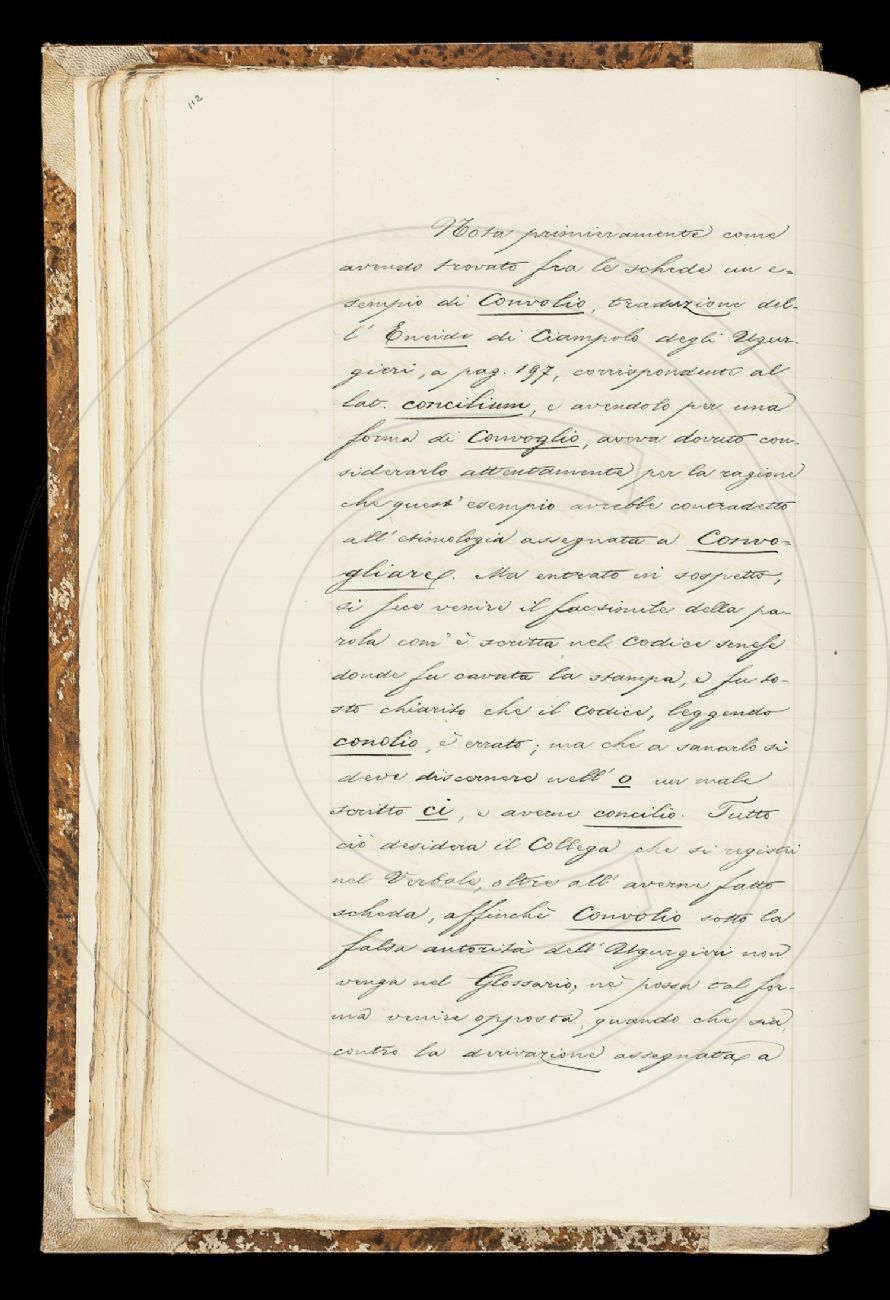 112
Nota primieramente come
avendo trovato fra le schede un e-
sempio di Convolio, traduzione del-
l' Eneide di Ciampolo degli Ugur-
gieri, a pag. 197, corrispondente al
lat. concilium, e avendolo per una
forma di Convoglio, aveva dovuto con-
siderarlo attentamente per la ragione
che quest' esempio avrebbe contradetto
all' etimologia assegnata a Convo-
gliare. Ma entrato in sospetto,
si fece venire il facsimile della pa-
rola com' è scritta nel codice senese
donde fu cavata la stampa, e fu to-
sto chiarito che il codice, leggendo
conolio, è errato; ma che a sanarlo si
deve discernere nell' o un male
scritto ci, e averne concilio. Tutto
ciò desidera il Collega che si registri
nel Verbale, oltre all' averne fatto
scheda, affinchè Convolio sotto la
falsa autorità dell' Ugurgieri non
venga nel Glossario, nè possa tal for-
ma venire opposta, quando che sia,
contro la derivazione assegnata a